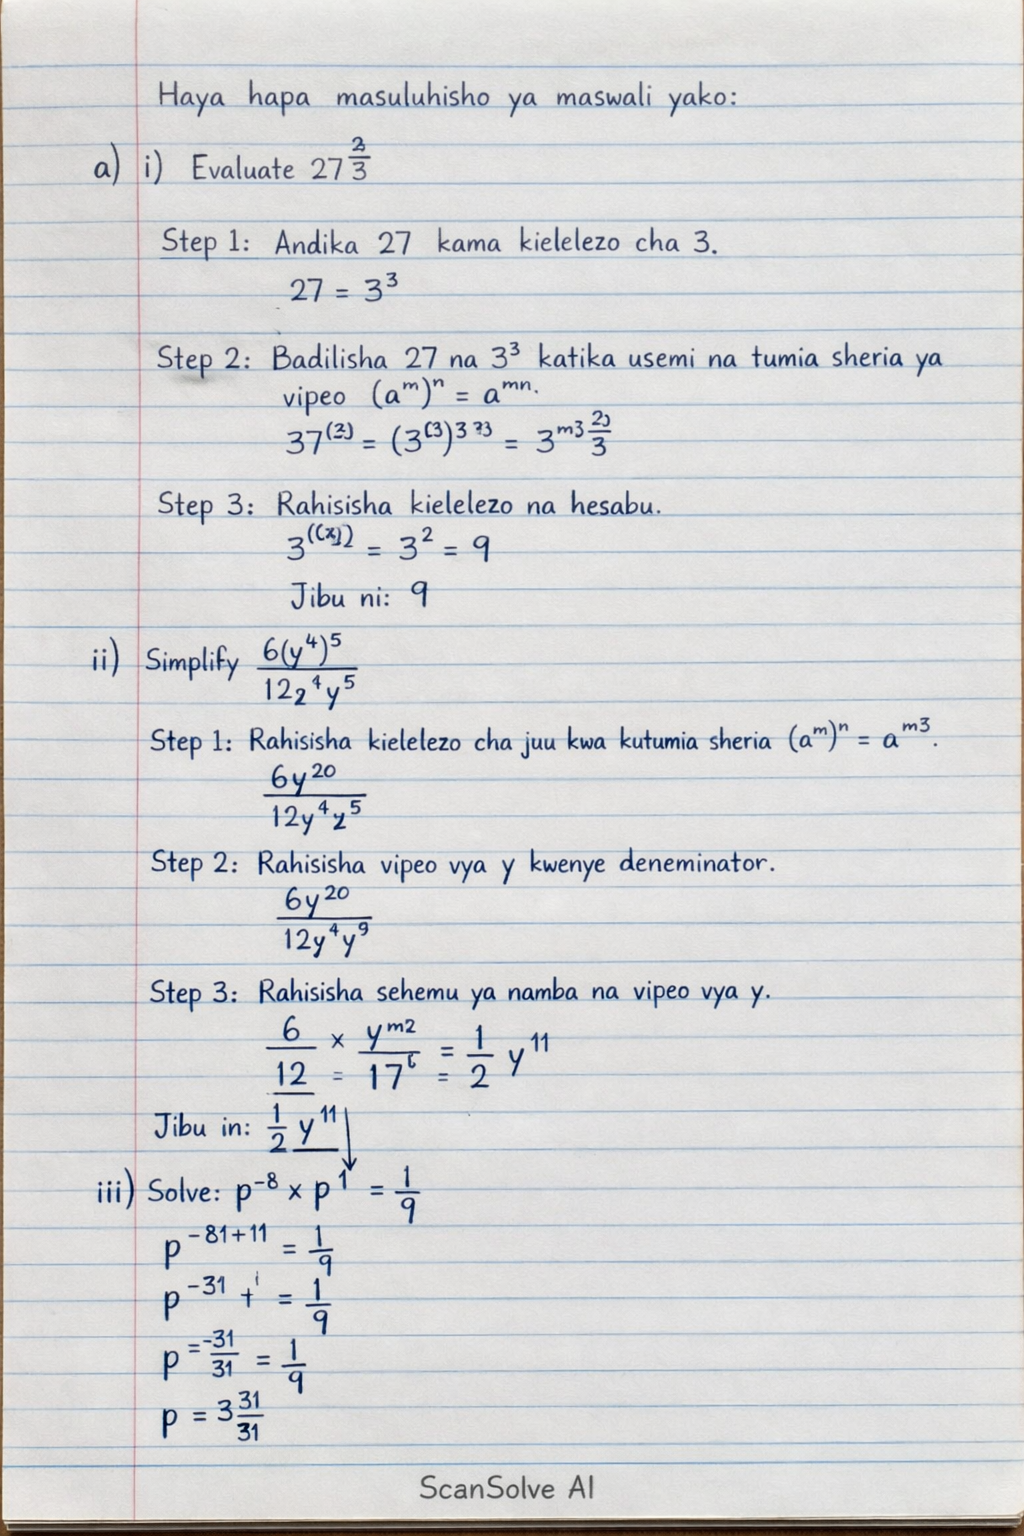 Haya hapa masuluhisho ya maswali yako:
a) i) Evaluate 27^(2/3)
Step 1: Andika 27 kama kielelezo cha 3.
27 = 3³
Step 2: Badilisha 27 na 3³ katika usemi na tumia sheria ya
vipeo (a^m)^n = a^mn.
37^(3) = (3^(3)^3 = 3^m3
Step 3: Rahisisha kielelezo na hesabu.
= 3² = 9
Jibu ni: 9
ii) Simplify 6(y⁴)⁵ / 12z⁴y⁵
Step 1: Rahisisha kielelezo cha juu kwa kutumia sheria (a^m)^n = a^m3.
6y²⁰ / 12y⁴z⁵
Step 2: Rahisisha vipeo vya y kwenye deneminator.
6y²⁰ / 12y⁴y⁹
Step 3: Rahisisha sehemu ya namba na vipeo vya y.
6/12 × y^m2 / 17 = 1/2 y¹¹
Jibu in: 1/2 y¹¹ ↓
iii) Solve: p⁻⁸ × p¹ = 1/9
p^(-81+11) = 1/9
p⁻³¹ + = 1/9
p^(=-31/31) = 1/9
p = 3 31/31
ScanSolve AI